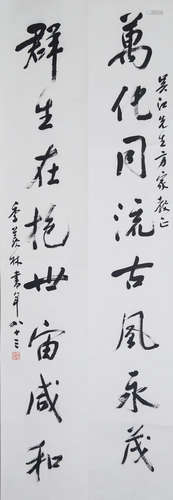 吳江先生方家教正
萬化同流古風永茂
群生在抱世宙咸和
季羨林書年八十三